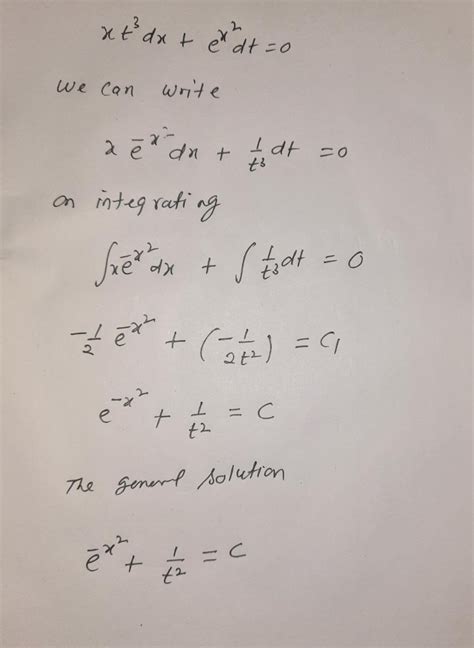 xt³dx + e^{x²}dt = 0
we can write
x e^{-x²} dx + 1/t³ dt = 0
on integrating
∫xe^{-x²} dx + ∫ 1/t³ dt = 0
-1/2 e^{-x²} + (-1/2t²) = C₁
e^{-x²} + 1/t² = C
The general solution
e^{-x²} + 1/t² = C